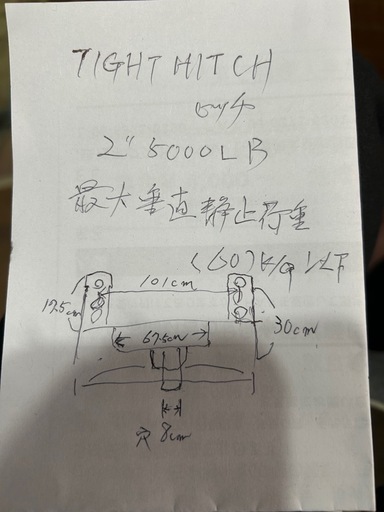 TIGHT HITCH
ヒッチ
2" 5000LB
最大垂直静止荷重
(60)K/g 以下
101cm
19.5cm
30cm
67.5cm
穴 8cm